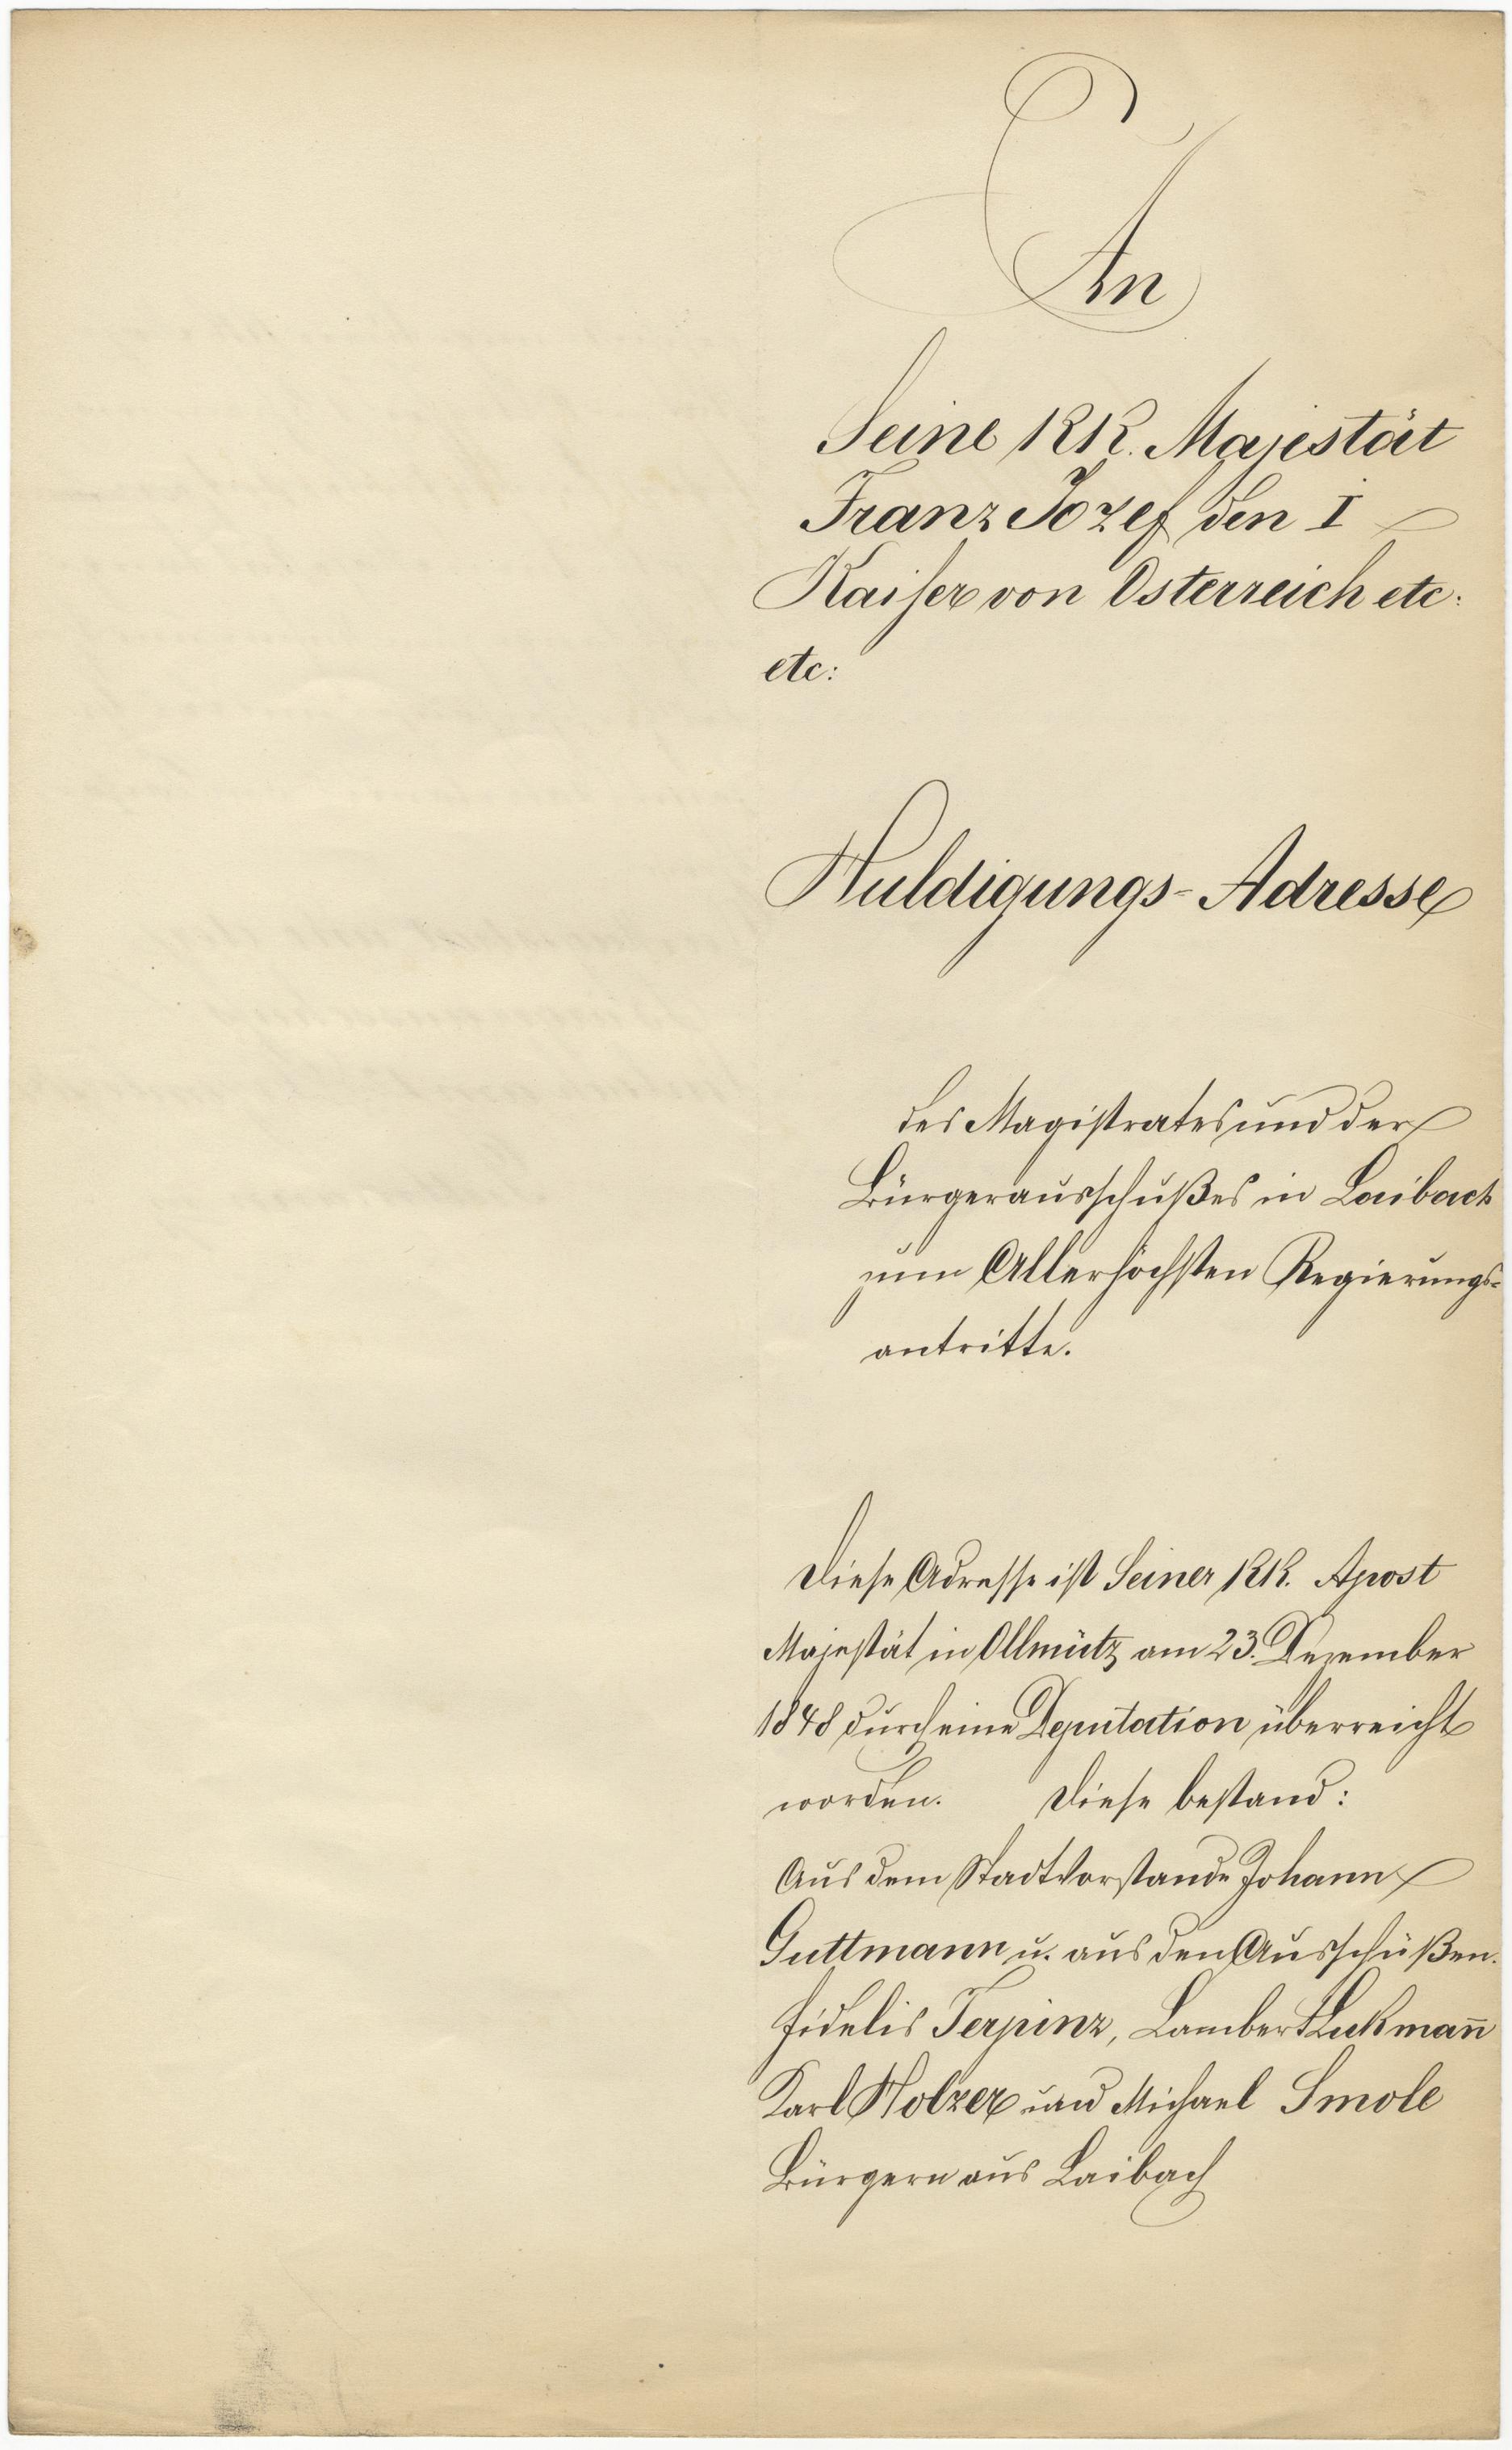 An
Seine KK. Majestät
Franz Jozef den I
Kaiser von Osterreich etc:
etc:
Huldigungs-Adresse
des Magistrates und der
Bürgerausschußes in Laibach
zum Allerhöchsten Regierungs=
antritte.
Diese Adresse ist Seiner KK. Apost
Majestät in Ollmütz am 23. Dezember
1848 durch eine Deputation überreicht
worden. Diese bestand:
Aus dem Stadtvorstande Johann
Guttmann u. aus den Ausschüßen.
Fidelis Terpinz, Lambert Lukmañ
Karl Holzer und Michael Smole
Bürgern aus Laibach